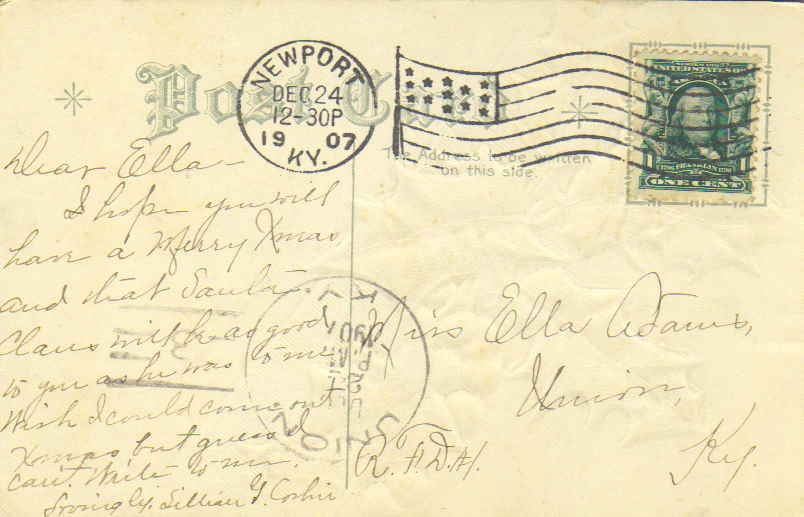 Post Card
NEWPORT
DEC 24
12-30P
1907
KY.
UNITED STATES OF
FRANKLIN
ONE CENT
The Address to be written
on this side.
Dear Ella-
I hope you will
have a Merry Xmas
and that Santa
Claus will be as good
to you as he was to me
Wish I could come out
Xmas but guess I
can't. Write to me.
Lovingly, Lillian G.
Miss Ella Adams,
Union,
Ky.
R.F.D.